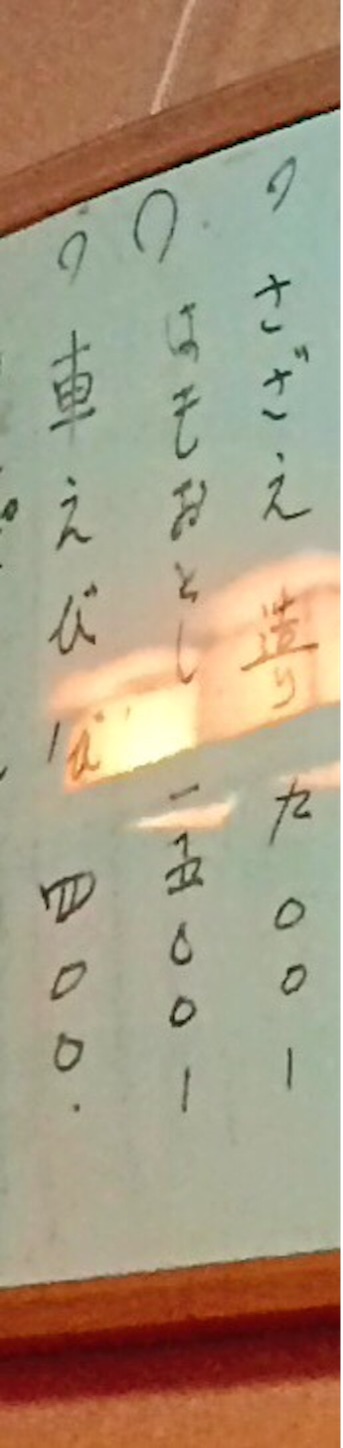 〃さざえ造り 九〇〇ー
〃はもおとし 一五〇〇ー
〃車えび 四〇〇.